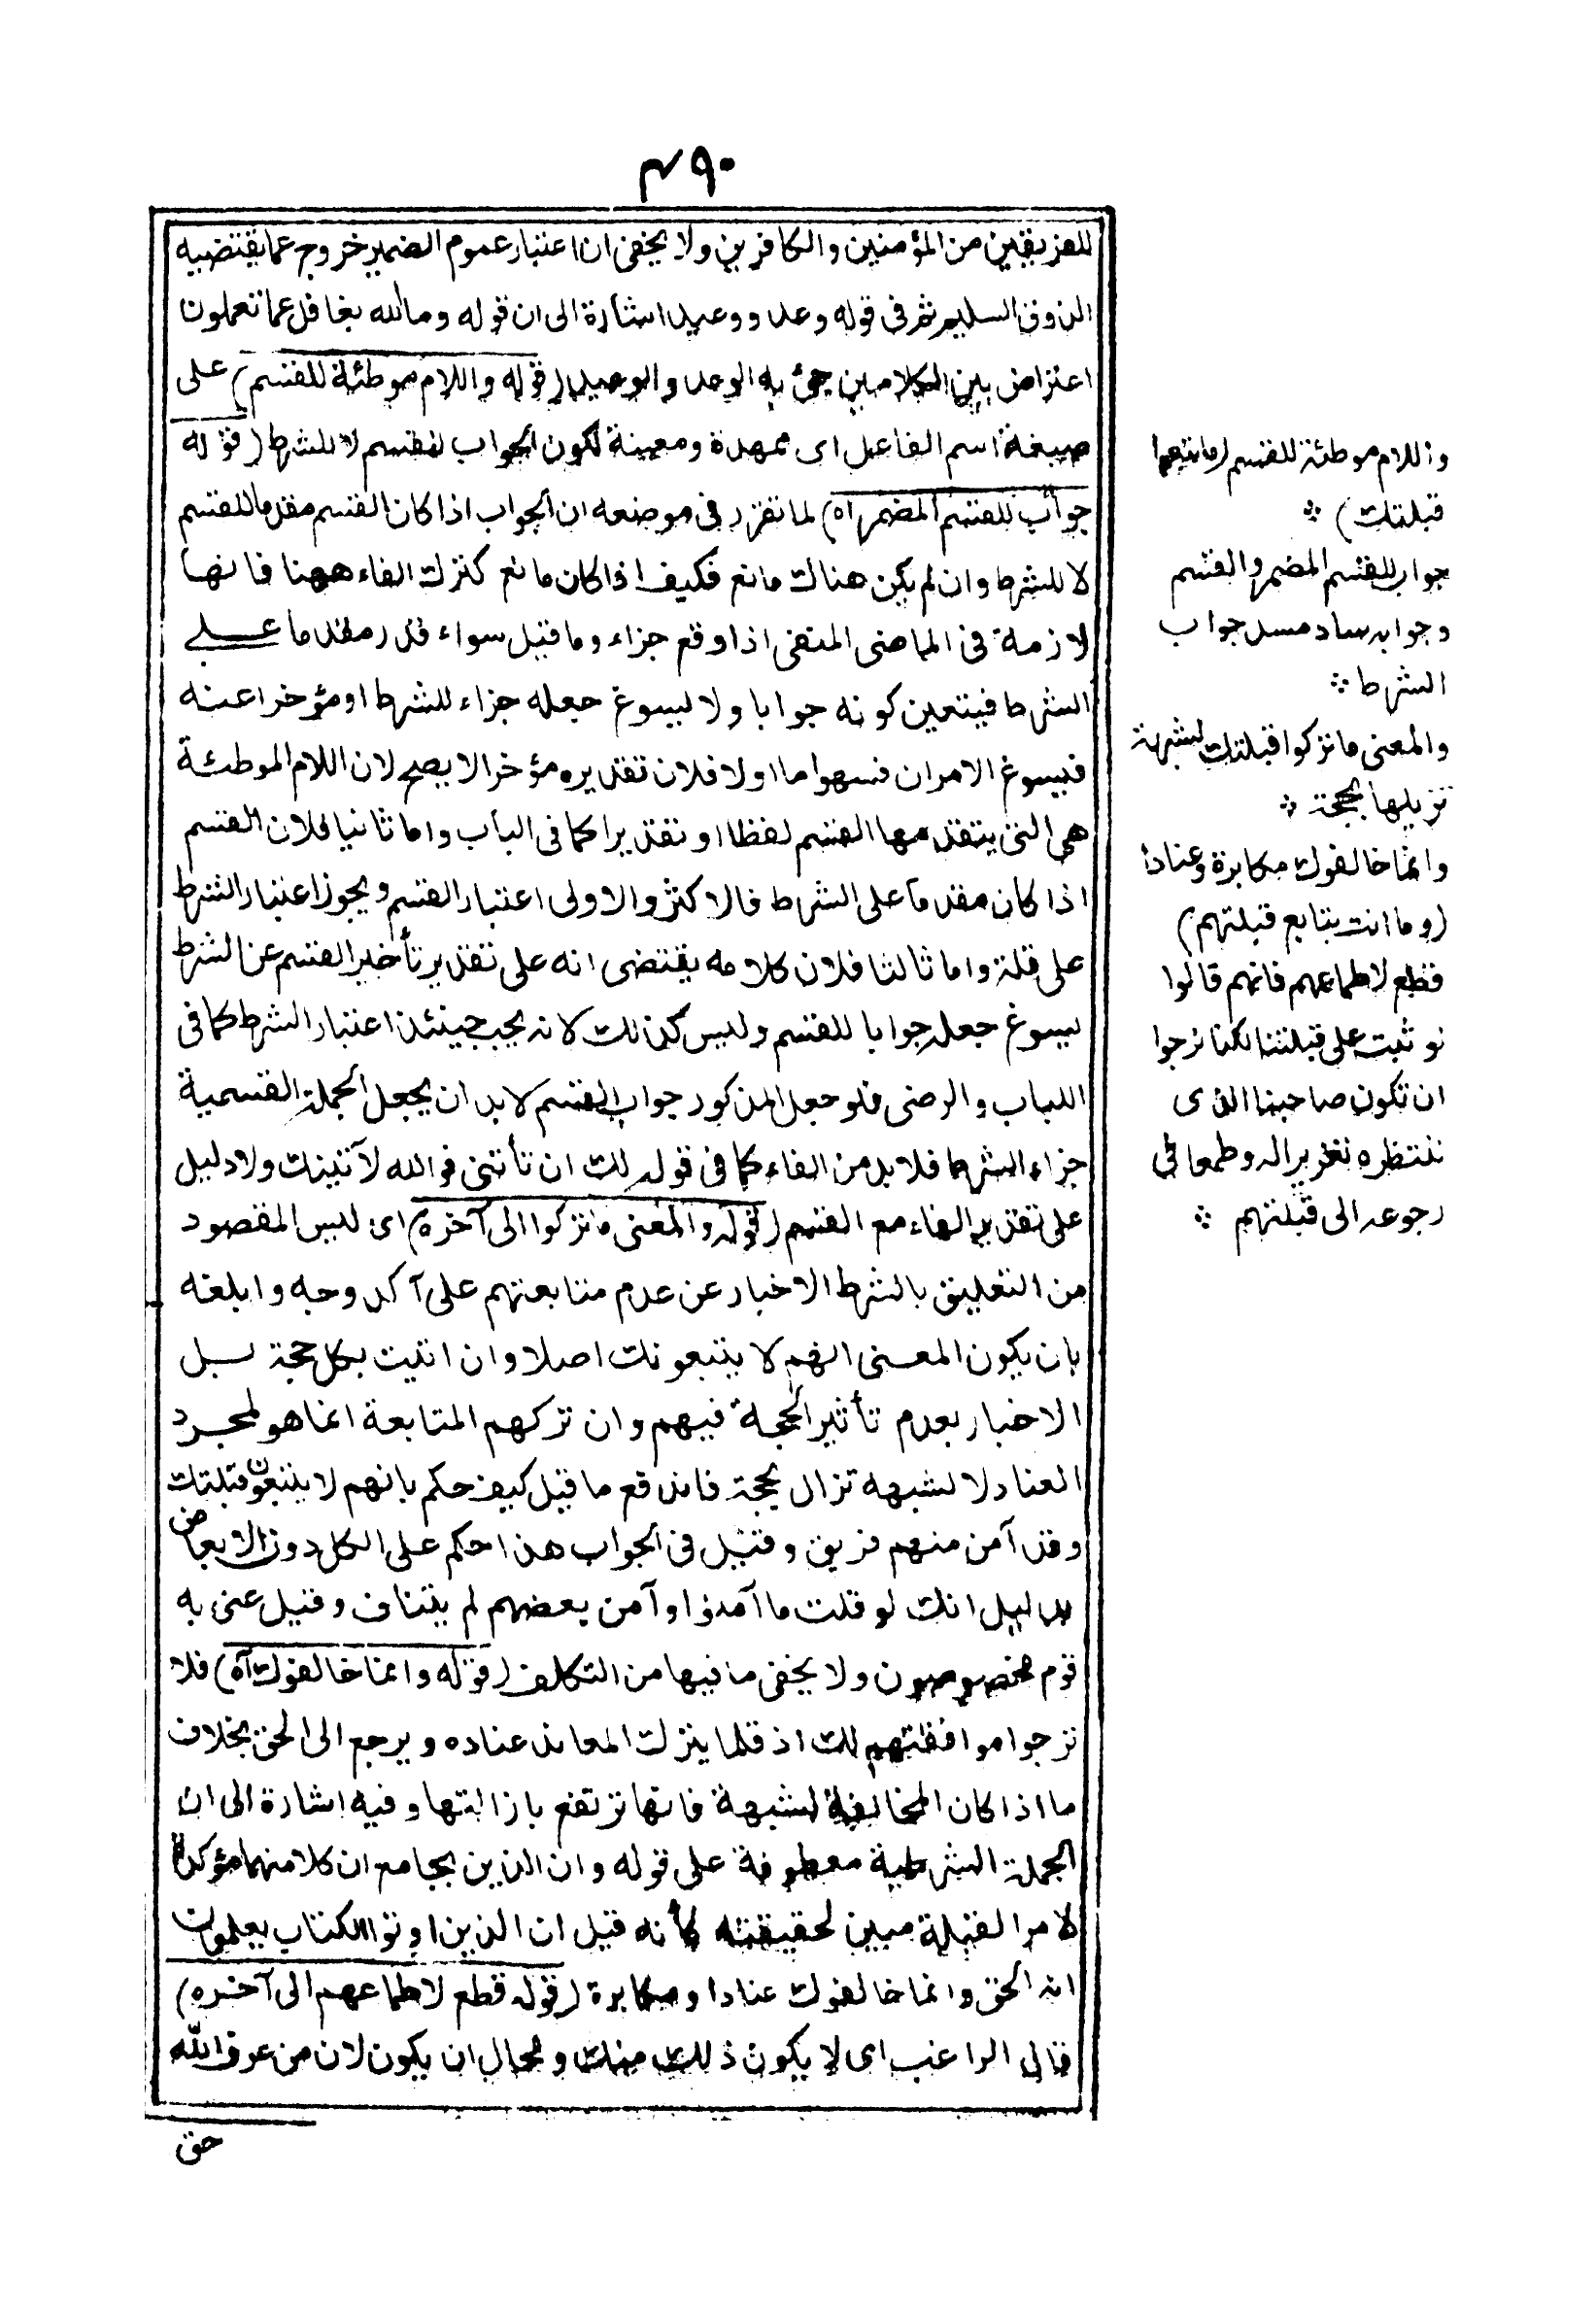 ٤٩٠
للفريقين من المؤمنين والكافرين ولا يخفى ان اعتبار عموم الضمير خروج عما يقتضيه
الذوق السليم ثم فى قوله وعد ووعيد اشارة الى ان قوله وما الله بغافل عما تعملون
اعتراض بين الكلامين جئ به الوعد والوعيد (قوله واللام موطئة للقسم) على
صيغة اسم الفاعل اى ممهدة ومعينة لكون الجواب للقسم لا للشرط (قوله
جواب للقسم المضمر اه) لما تقرر فى موضعه ان الجواب اذا كان القسم مقدما للقسم
لا للشرط وان لم يكن هناك مانع فكيف اذا كان مانع كترك الفاء ههنا فانها
لازمة فى الماضى المنفى اذا وقع جزاء وما قيل سواء قدر مقدما على
الشرط فيتعين كونه جوابا ولا يسوغ جعله جزاء للشرط او مؤخرا عنه
فيسوغ الامران فسهو اما اولا فلان تقديره مؤخرا لا يصح لان اللام الموطئة
هى التى يتقدمها القسم لفظا او تقديرا كما فى الباب واما ثانيا فلان القسم
اذا كان مقدما على الشرط فالاكثر والاولى اعتبار القسم ويجوز اعتبار الشرط
على قلة واما ثالثا فلان كلامه يقتضى انه على تقدير تأخير القسم عن الشرط
يسوغ جعله جوابا للقسم وليس كذلك لانه يجب حينئذ اعتبار الشرط كما فى
اللباب والرضى فلو جعل المذكور جواب القسم لا بد ان يجعل الجملة القسمية
جزاء الشرط فلا بد من الفاء كما فى قوله لك ان تأتنى فوالله لآتينك ولا دليل
على تقدير الفاء مع القسم (قوله والمعنى ما تركوا الى آخره) اى ليس المقصود
من التعليق بالشرط الاخبار عن عدم متابعتهم على آكد وجه وابلغه
بان يكون المعنى انهم لا يتبعونك اصلا وان اتيت بكل حجة بل
الاخبار بعدم تأثير الحجة فيهم وان تركهم المتابعة انما هو لمجرد
العناد لا لشبهه تزال بحجة فاندفع ما قيل كيف حكم بانهم لا يتبعون قبلتك
وقد آمن منهم فريق وقيل فى الجواب هذا حكم على الكل دون الابعاض
بدليل انك لو قلت ما آمنوا وآمن بعضهم لم يتناف وقيل عنى به
قوم مخصوصون ولا يخفى ما فيها من التكلف (قوله وانما خالفوك آه) فلا
ترجوا موافقتهم لك اذ قلما يترك المعاند عناده ويرجع الى الحق بخلاف
ما اذا كان المخالفة لشبهة فانها ترتفع بازالتها وفيه اشارة الى ان
الجملة الشرطية معطوفة على قوله وان الذين بجامع ان كلا منهما مؤكدا
لامر القبلة مبين لحقيقته كأنه قيل ان الذين اوتوا الكتاب يعلمون
انه الحق وانما خالفوك عنادا ومكابرة (قوله قطع لاطماعهم الى آخره)
قال الراغب اى لا يكون ذلك منك ومحال ان يكون لان من عرف الله
حق
واللام موطئة للقسم (ما تبعوا
قبلتك) ܀
جواب للقسم المضمر والقسم
وجوابه ساد مسد جواب
الشرط ܀
والمعنى ما تركوا قبلتك لشبهة
تزيلها بحجة ܀
وانما خالفوك مكابرة وعنادا
(وما انت بتابع قبلتهم)
قطع لاطماعهم فانهم قالوا
لو ثبت على قبلتنا لكنا نرجوا
ان تكون صاحبنا الذى
ننتظره تغريرا له وطمعا فى
رجوعه الى قبلتهم ܀